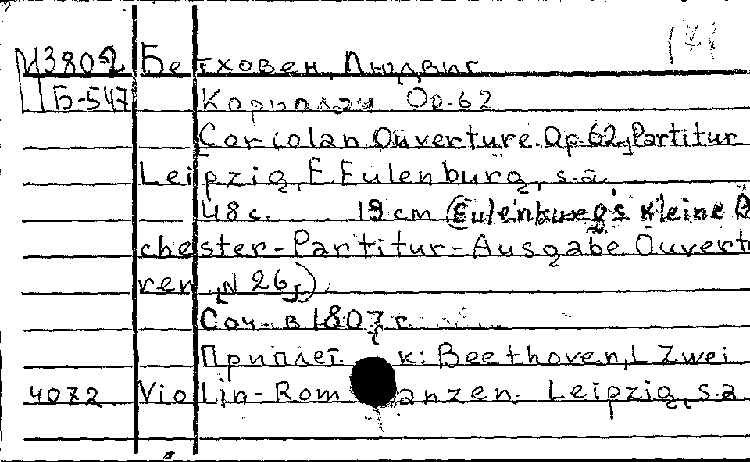 И3802 Бетховен, Людвиг
Б-547 Кориолан Op. 62
Coriolan Ouverture. Op. 62, Partitur
Leipzig, E. Eulenburg, s.a.
48 с. 19 cm (Eulenburg's kleine Or
chester-Partitur-Ausgabe. Ouvertü
ren, N 26)
Соч. в 1807 г.
Приплет. к: Beethoven, L. Zwei
4072 Violin-Romanzen. Leipzig, s.a